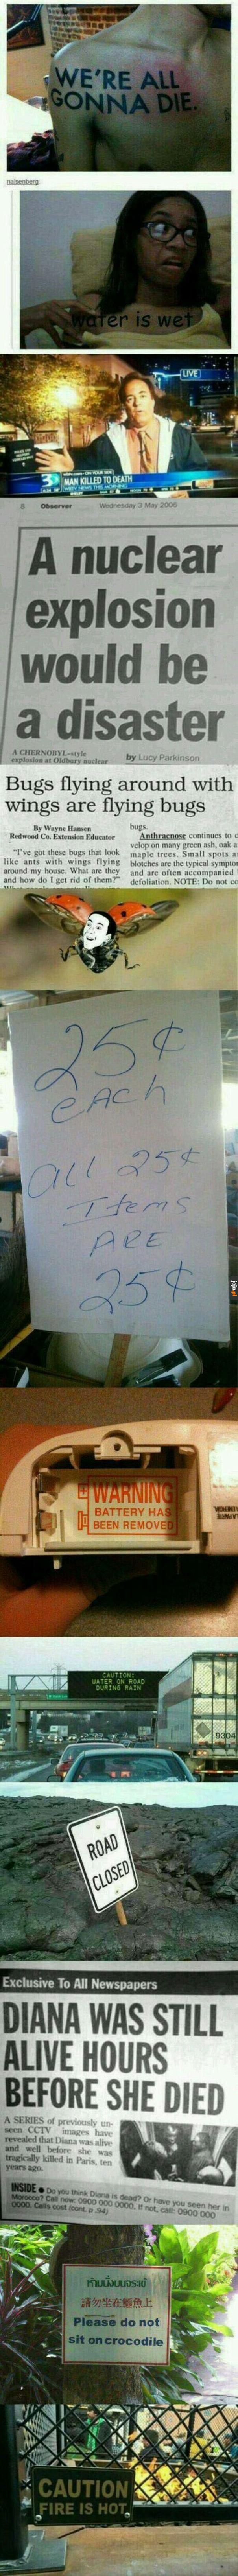 WE'RE ALL
GONNA DIE.
naisenberg:
water is wet
LIVE
3
MAN KILLED TO DEATH
8 Observer Wednesday 3 May 2006
A nuclear
explosion
would be
a disaster
A CHERNOBYL-style
explosion at Oldbury nuclear
by Lucy Parkinson
Bugs flying around with
wings are flying bugs
By Wayne Hansen
Redwood Co. Extension Educator
"I've got these bugs that look
like ants with wings flying
around my house. What are they
and how do I get rid of them?"
bugs.
Anthracnose continues to
velop on many green ash, oak a
maple trees. Small spots a
blotches are the typical sympto
and are often accompanied
defoliation. NOTE: Do not co
25¢
each
all 25¢
Items
ARE
25¢
WARNING
BATTERY HAS
BEEN REMOVED
CAUTION!
WATER ON ROAD
DURING RAIN
9304
ROAD
CLOSED
Exclusive To All Newspapers
DIANA WAS STILL
ALIVE HOURS
BEFORE SHE DIED
A SERIES of previously un-
seen CCTV images have
revealed that Diana was alive
and well before she was
tragically killed in Paris, ten
years ago.
INSIDE ● Do you think Diana is dead? Or have you seen her in
Morocco? Call now: 0900 000 0000. If not, call: 0900 000
0000. Calls cost (cont, p .94)
ห้ามนั่งบนจระเข้
請勿坐在鱷魚上
Please do not
sit on crocodile
CAUTION
FIRE IS HOT